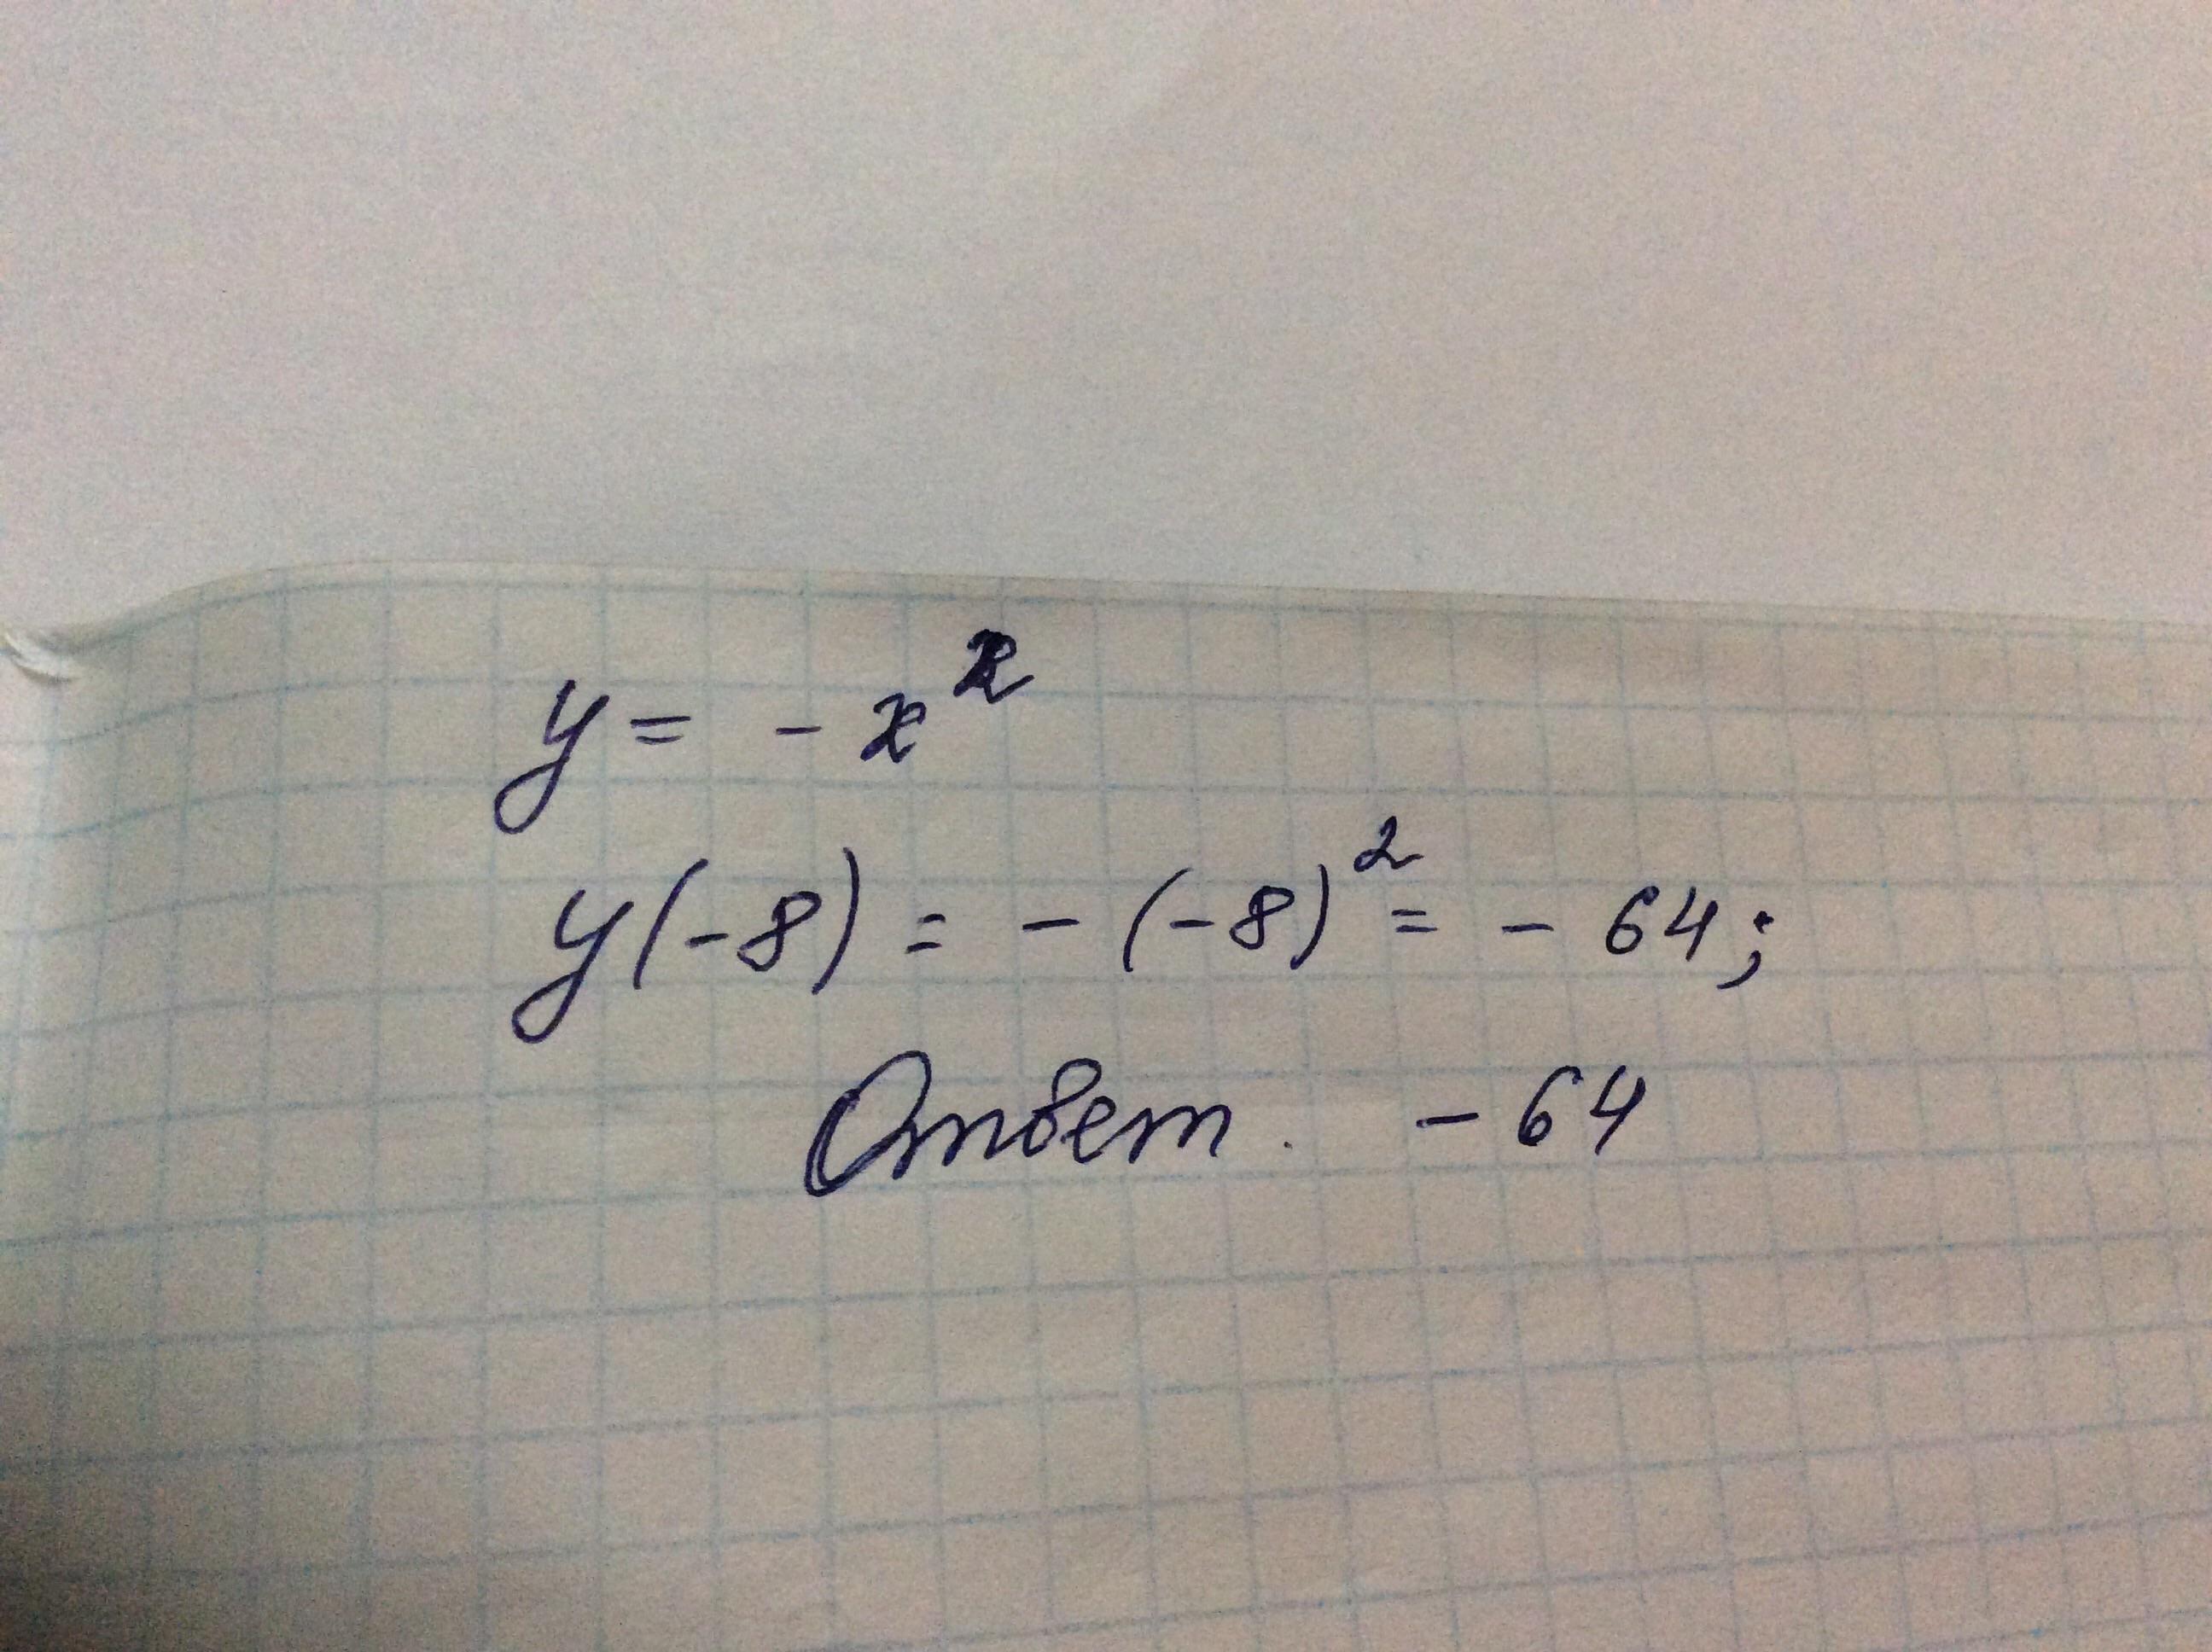 y = - x²
y(-8) = - (-8)² = - 64;
Ответ. - 64